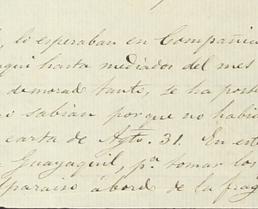 lo esperaban en Compañia
aqui hasta mediados del mes
demorad tanto, se ha post
sabian porque no habi
carta de Agto. 31. En est
Guayaquil, pa. tomar los
lparaiso á bordo de la frag